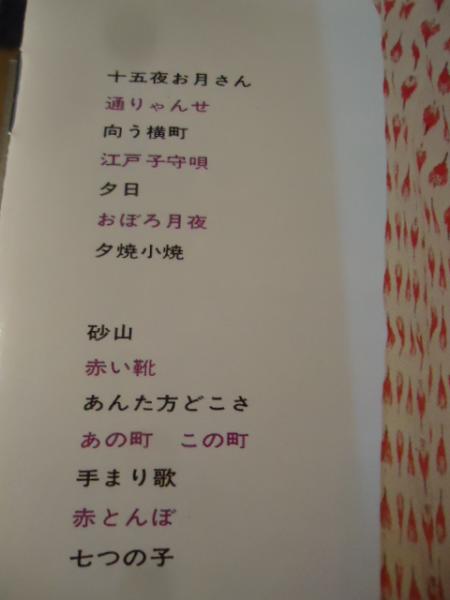 十五夜お月さん
通りゃんせ
向う横町
江戸子守唄
夕日
おぼろ月夜
夕焼小焼
砂山
赤い靴
あんた方どこさ
あの町　この町
手まり歌
赤とんぼ
七つの子